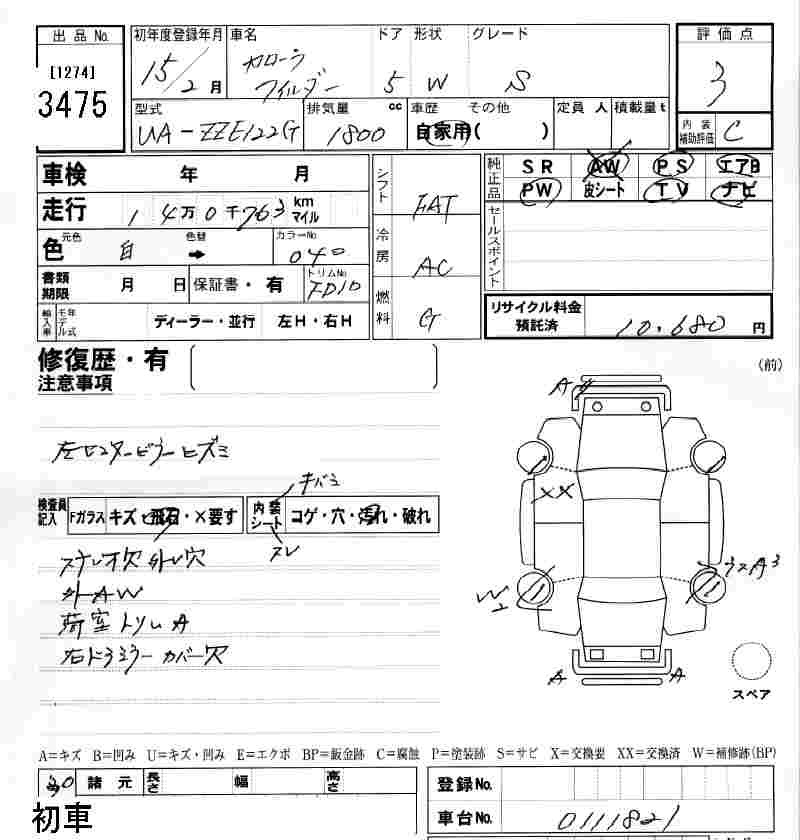 出品No.
[1274]
3475
初年度登録年月 車名 ドア 形状 グレード
15/2月 カローラ フィルダー 5 W S
評価点
3
型式 排気量 cc 車歴 その他 定員 人 積載量 t
UA-ZZE122G 1800 自家用( )
内装補助評価 C
車検 年 月
走行 1 4万0千763 km マイル
色 元色 白 色替 → カラーNo. 040
書類期限 月 日 保証書・有 トリムNo. FD10
輸入車 モデル年式 ディーラー・並行 左H・右H
シフト FAT
冷房 AC
燃料 G
純正品 SR AW PS エアB
PW 皮シート TV ナビ
セールスポイント
リサイクル料金預託済 10.680 円
修復歴・有
注意事項
(前)
左センターピラーヒズミ
検査員記入 Fガラス キズ・飛石・×要す 内装シート コゲ・穴・汚れ・破れ
キバミ
スレ
ステレオ欠 外し穴
外AW
荷室トリムA
右ドアミラーカバー欠
A
XX
W2
A3
A
A
スペア
A=キズ B=凹み U=キズ・凹み E=エクボ BP=鈑金跡 C=腐蝕 P=塗装跡 S=サビ X=交換要 XX=交換済 W=補修跡(BP)
30 諸元 長さ 幅 高さ
登録No.
初車
車台No. 0111821